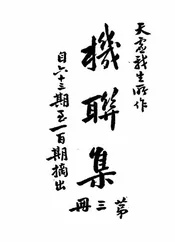 天虛我生所作
機聯集
第三冊
自六十三期至一百期摘出